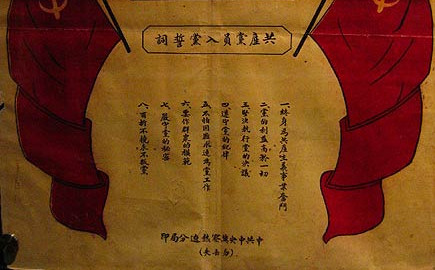 共產黨員入黨誓詞
一、終身為共產主義事業奮鬥
二、黨的利益高於一切
三、堅決執行黨的決議
四、遵守黨的紀律
五、不怕困難永遠為黨工作
六、要作群眾的模範
七、嚴守黨的秘密
八、百折不撓永不叛黨
中共中央冀察熱遼分局印